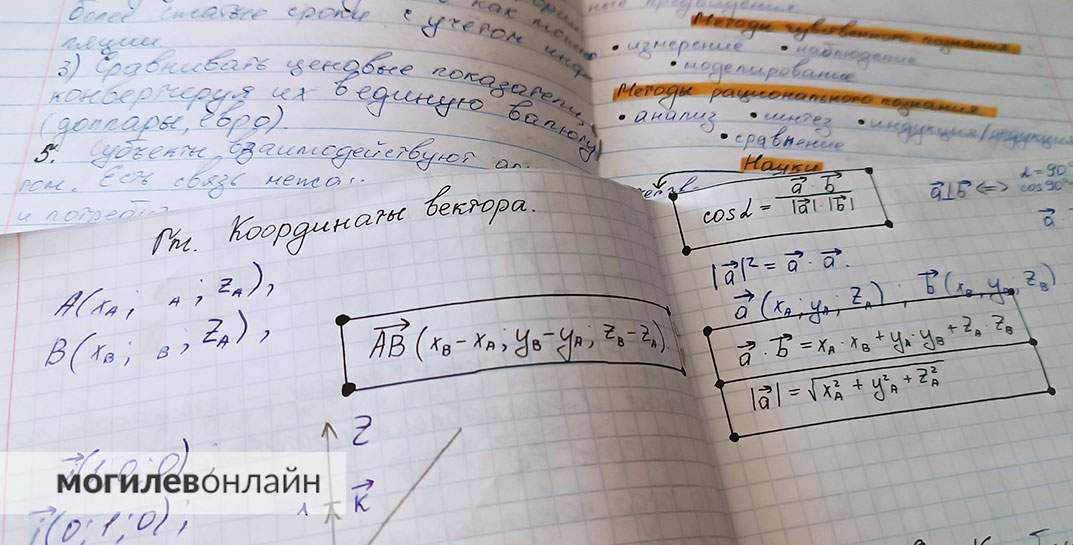 более сжатые сроки с учетом
ляции
3) Сравнивать ценовые показатели,
конвертируя их в единую валюту
(доллары, евро).
5. Субъекты взаимодействуют
Есть связь
и
Методы чувственного познания
• измерение • наблюдение
• моделирование
Методы рационального познания
• анализ • синтез • индукция/дедукция
• сравнение
Науки
Гл. Координаты вектора.
A(xA; A; ZA),
B(xB; B; ZA),
AB⃗ (xB−xA; yB−yA; ZB−ZA)
Z
k⃗
i⃗(0; 1; 0);
cos α = a⃗ · b⃗ / |a⃗| · |b⃗|
a⃗⊥b⃗ <=> α=90°
cos90°
a⃗
|a⃗|² = a⃗ · a⃗.
a⃗ (xA; yA; ZA); b⃗ (xB, yB, ZB).
a⃗ · b⃗ = xA · xB + yA · yB + ZA · ZB
|a⃗| = √x²A + y²A + Z²A
могилевонлайн